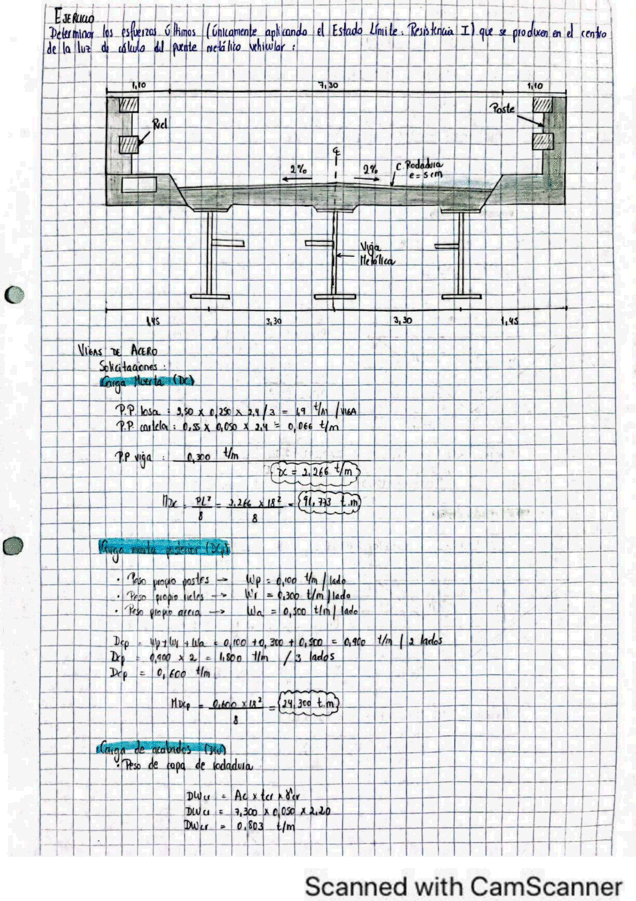 EJERCICIO
Determinar los esfuerzos últimos (únicamente aplicando el Estado Límite: Resistencia I) que se producen en el centro
de la luz de cálculo del puente metálico vehicular:
1,10 7,30 1,10
Riel
Poste
C. Rodadura
e = 5 cm
2% 2%
Viga
Metálica
1,45 3,30 3,30 1,45
VIGAS DE ACERO
Solicitaciones:
Carga Muerta (DC)
P.P losa : 9,50 x 0,250 x 2,4 / 3 = 1,9 t/m /VIGA
P.P cartela : 0,55 x 0,050 x 2,4 = 0,066 t/m
P.P viga : 0,300 t/m
DC = 2,266 t/m
MDC = PL² / 8 = 2,266 x 18² / 8 = 91,773 t.m
Carga muerta posterior (DCp)
• Peso propio postes → Wp = 0,100 t/m / lado
• Peso propio rieles → Wr = 0,300 t/m / lado
• Peso propio acera → Wa = 0,500 t/m / lado
Dcp = Wp + Wr + Wa = 0,100 + 0,300 + 0,500 = 0,900 t/m / 2 lados
Dcp = 0,900 x 2 = 1,800 t/m / 3 lados
Dcp = 0,600 t/m
MDcp = 0,600 x 18² / 8 = 24,300 t.m
Carga de acabados (DW)
• Peso de capa de rodadura
DWcr = Ac x tcr x γcr
DWcr = 7,300 x 0,050 x 2,20
DWcr = 0,803 t/m
Scanned with CamScanner